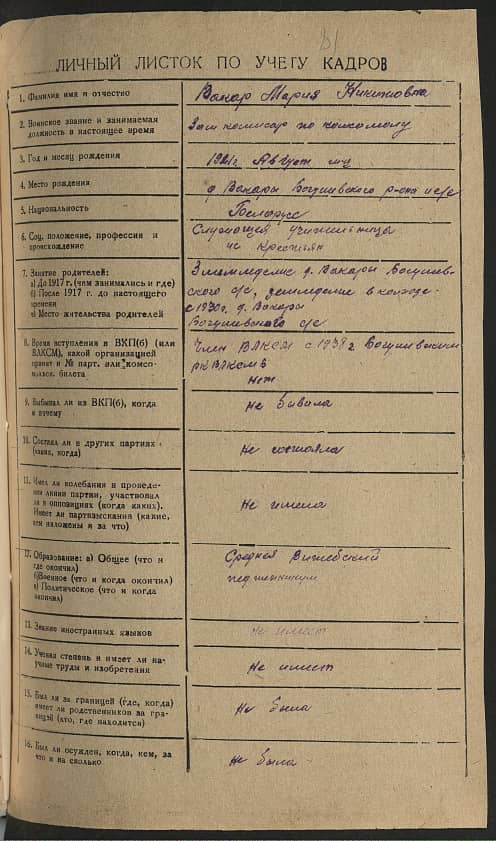 ЛИЧНЫЙ ЛИСТОК ПО УЧЕТУ КАДРОВ
1. Фамилия имя и отчество
Вакар Мария Никитовна
2. Воинское звание и занимаемая
должность в настоящее время
Зам комиссар по комсомолу
3. Год и месяц рождения
1921г. Август м-ц
4. Место рождения
д Вакары Богушевского р-она и с/с
5. Национальность
Белорусс
6. Соц. положение, профессия и
происхождение
Служащая учительница
из крестьян
7. Занятие родителей:
а) До 1917 г. (чем занимались и где)
б) После 1917 г. до настоящего
времени
в) Место жительства родителей
Земледелие д. Вакары Богушев-
ского с/с, земледелие в колхозе
с 1930г. д. Вакары
Богушевского с/с
8. Время вступления в ВКП(б) (или
ВЛКСМ), какой организацией
принят и № парт. или комсо-
мольск. билета
Член ВЛКСМ с 1938г Богушевским
РК ВЛКСМБ
Нет
9. Выбывал ли из ВКП(б), когда
и почему
Не бывала
10. Состоял ли в других партиях
(каких, когда)
Не состояла
11. Имел ли колебания в проведе-
нии линии партии, участвовал
ли в оппозициях (когда каких).
Имеет ли партвзыскания (какие,
кем наложены и за что)
Не имела
12. Образование: а) Общее (что и
где окончил)
б)Военное (что и когда окончил)
в) Политическое (что и когда
окончил)
Средная Витебский
пед техникум
13. Знание иностранных языков
Не имеет
14. Ученая степень и имеет ли на-
учные труды и изобретения
Не имеет
15. Был ли за границей (где, когда)
имеет ли родственников за гра-
ницей (кто, где находится)
Не была
16. Был ли осужден, когда, кем, за
что и на сколько
Не была